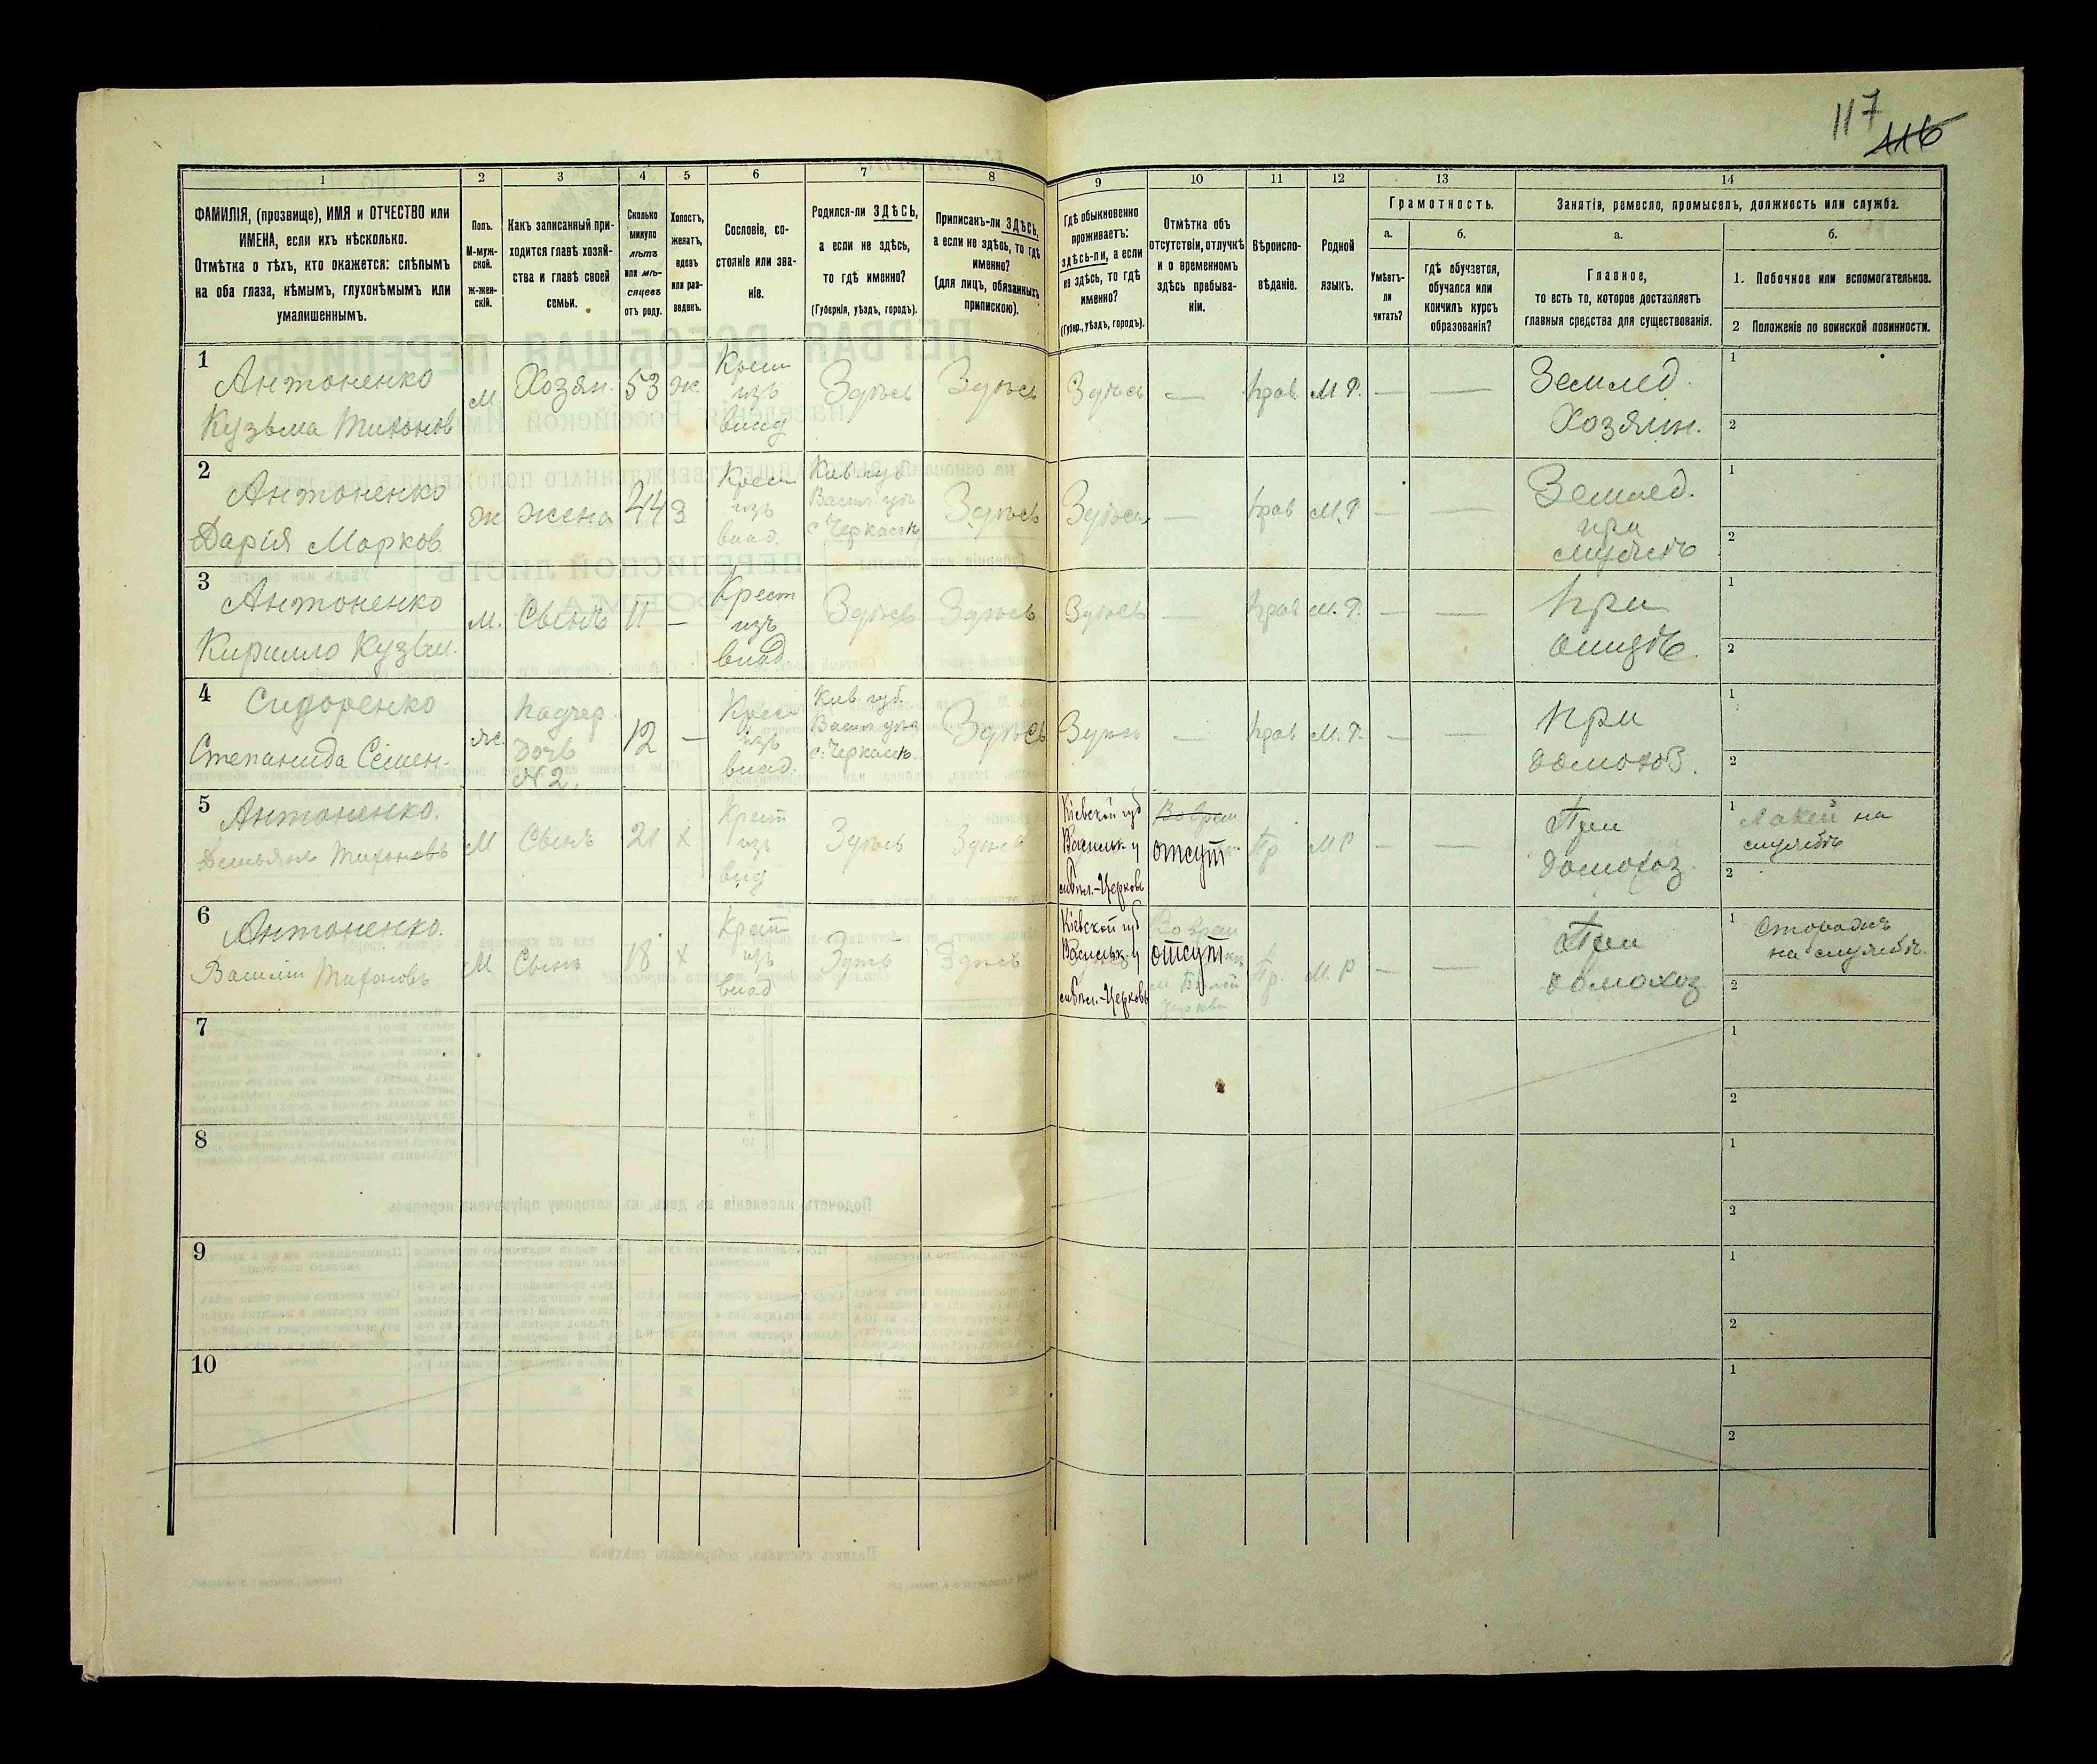 117
116
1
2
3
4
5
6
7
8
9
10
11
12
13
14
ФАМИЛІЯ, (прозвище), ИМЯ и ОТЧЕСТВО или
ИМЕНА, если ихъ нѣсколько.
Отмѣтка о тѣхъ, кто окажется: слѣпымъ
на оба глаза, нѣмымъ, глухонѣмымъ или
умалишеннымъ.
Полъ.
М-муж-
ской.
Ж-жен-
скій.
Какъ записанный при-
ходится главѣ хозяй-
ства и главѣ своей
семьи.
Сколько
минуло
лѣтъ
или мѣ-
сяцевъ
отъ роду.
Холостъ,
женатъ,
вдовъ
или раз-
веденъ.
Сословіе, со-
стояніе или зва-
ніе.
Родился-ли ЗДѢСЬ,
а если не здѣсь,
то гдѣ именно?
(Губернія, уѣздъ, городъ).
Приписанъ-ли ЗДѢСЬ,
а если не здѣсь, то гдѣ
именно?
(для лицъ, обязанныхъ
припискою).
Гдѣ обыкновенно
проживаетъ:
здѣсь-ли, а если
не здѣсь, то гдѣ
именно?
(Губер., уѣздъ, городъ).
Отмѣтка объ
отсутствіи, отлучкѣ
и о временномъ
здѣсь пребыва-
ніи.
Вѣроиспо-
вѣданіе.
Родной
языкъ.
Грамотность.
а.
б.
Умѣетъ-
ли
читать?
гдѣ обучается,
обучался или
кончилъ курсъ
образованія?
Занятіе, ремесло, промыселъ, должность или служба.
а.
б.
Главное,
то есть то, которое доставляетъ
главныя средства для существованія.
1. Побочное или вспомогательное.
2 Положеніе по воинской повинности.
1
Антоненко
Кузьма Тихонов
М.
Хозяин.
53
ж.
Крест
изъ
влад
Здѣсь
Здѣсь
Здѣсь
—
Прав.
М. Р.
—
—
Землед.
Хозяин.
1
2
2
Антоненко
Дарія Марков.
Ж
жена
44
З
Крест
изъ
влад.
Кив. губ
Васил. уѣз
с. Черкаск
Здѣсь
Здѣсь
—
Прав
М. Р
—
—
Землед.
при
1
2
3
Антоненко
Кирилло Кузьм.
М.
Сынъ
11
—
Крест
изъ
влад
Здѣсь
Здѣсь
Здѣсь
—
Прав
М. Р.
—
—
При
отцѣ
1
2
4
Сидоренко
Степанида Сёмен.
ж.
Падчер.
дочь
№2.
12
—
Крес
изъ
влад.
Кив. губ.
Васил. уѣз
с. Черкаск.
Здѣсь
Здѣсь
—
Прав
М. Р.
—
—
При
домохоз.
1
2
5
Антоненко.
Демьянъ Тихоновъ
М
Сынъ
21
х
Крест
изъ
влад
Здѣсь
Здѣсь
Кіевской губ
Васильк. у
м Бѣл.-Церковь
отсут
Пр.
М Р
—
—
При
домохоз.
1 Лакей на
службѣ
2
6
Антоненко.
Василій Тихоновъ
М
Сынъ
18
х
Крест
изъ
влад
Здѣсь
Здѣсь
Кіевской губ
Васильк. у
м Бѣл.-Церковь
отсут
м Бѣлой
Церкви
Пр.
М. Р
—
—
При
домохоз
1 Сторожъ
на службѣ.
2
7
1
2
8
1
2
9
1
2
10
1
2